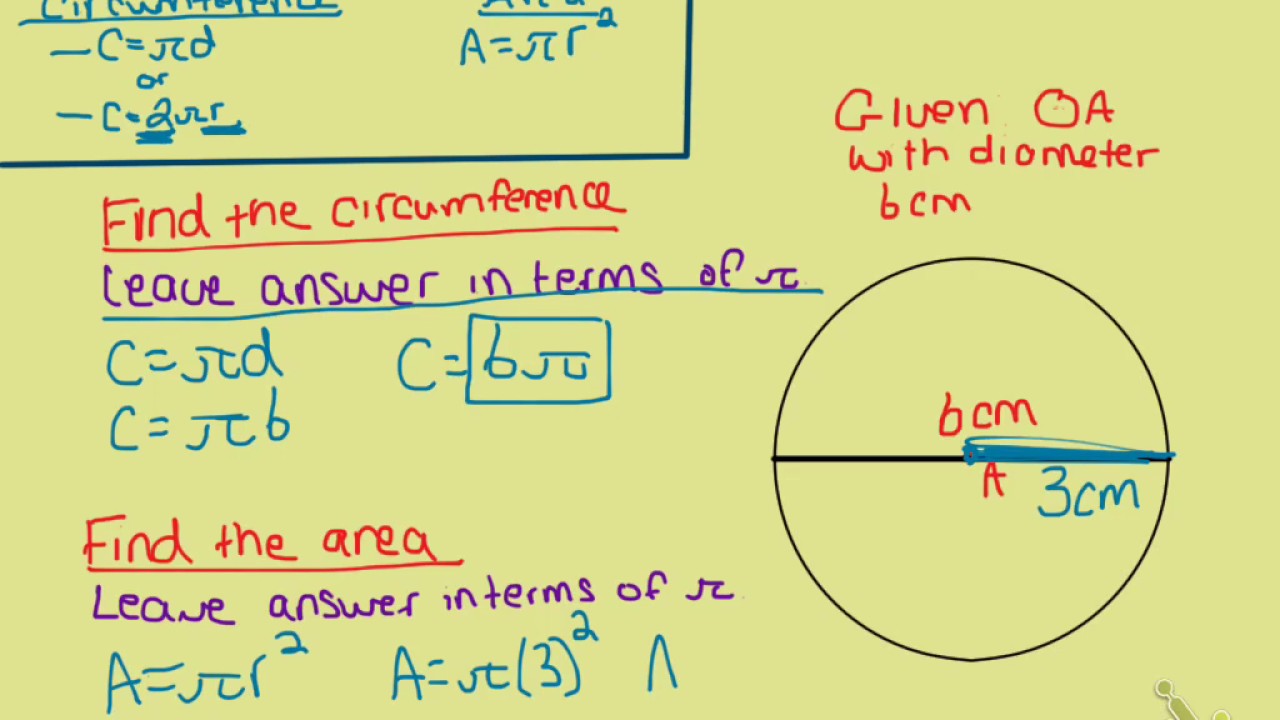 Circumference
— C = πd
or
— C = 2πr
Area
A = πr²
Given ⊙A
with diameter
6cm
Find the circumference
Leave answer in terms of π
C = πd
C = 6π
C = π6
6cm
A
3cm
Find the area
Leave answer in terms of π
A = πr²
A = π(3)²
A